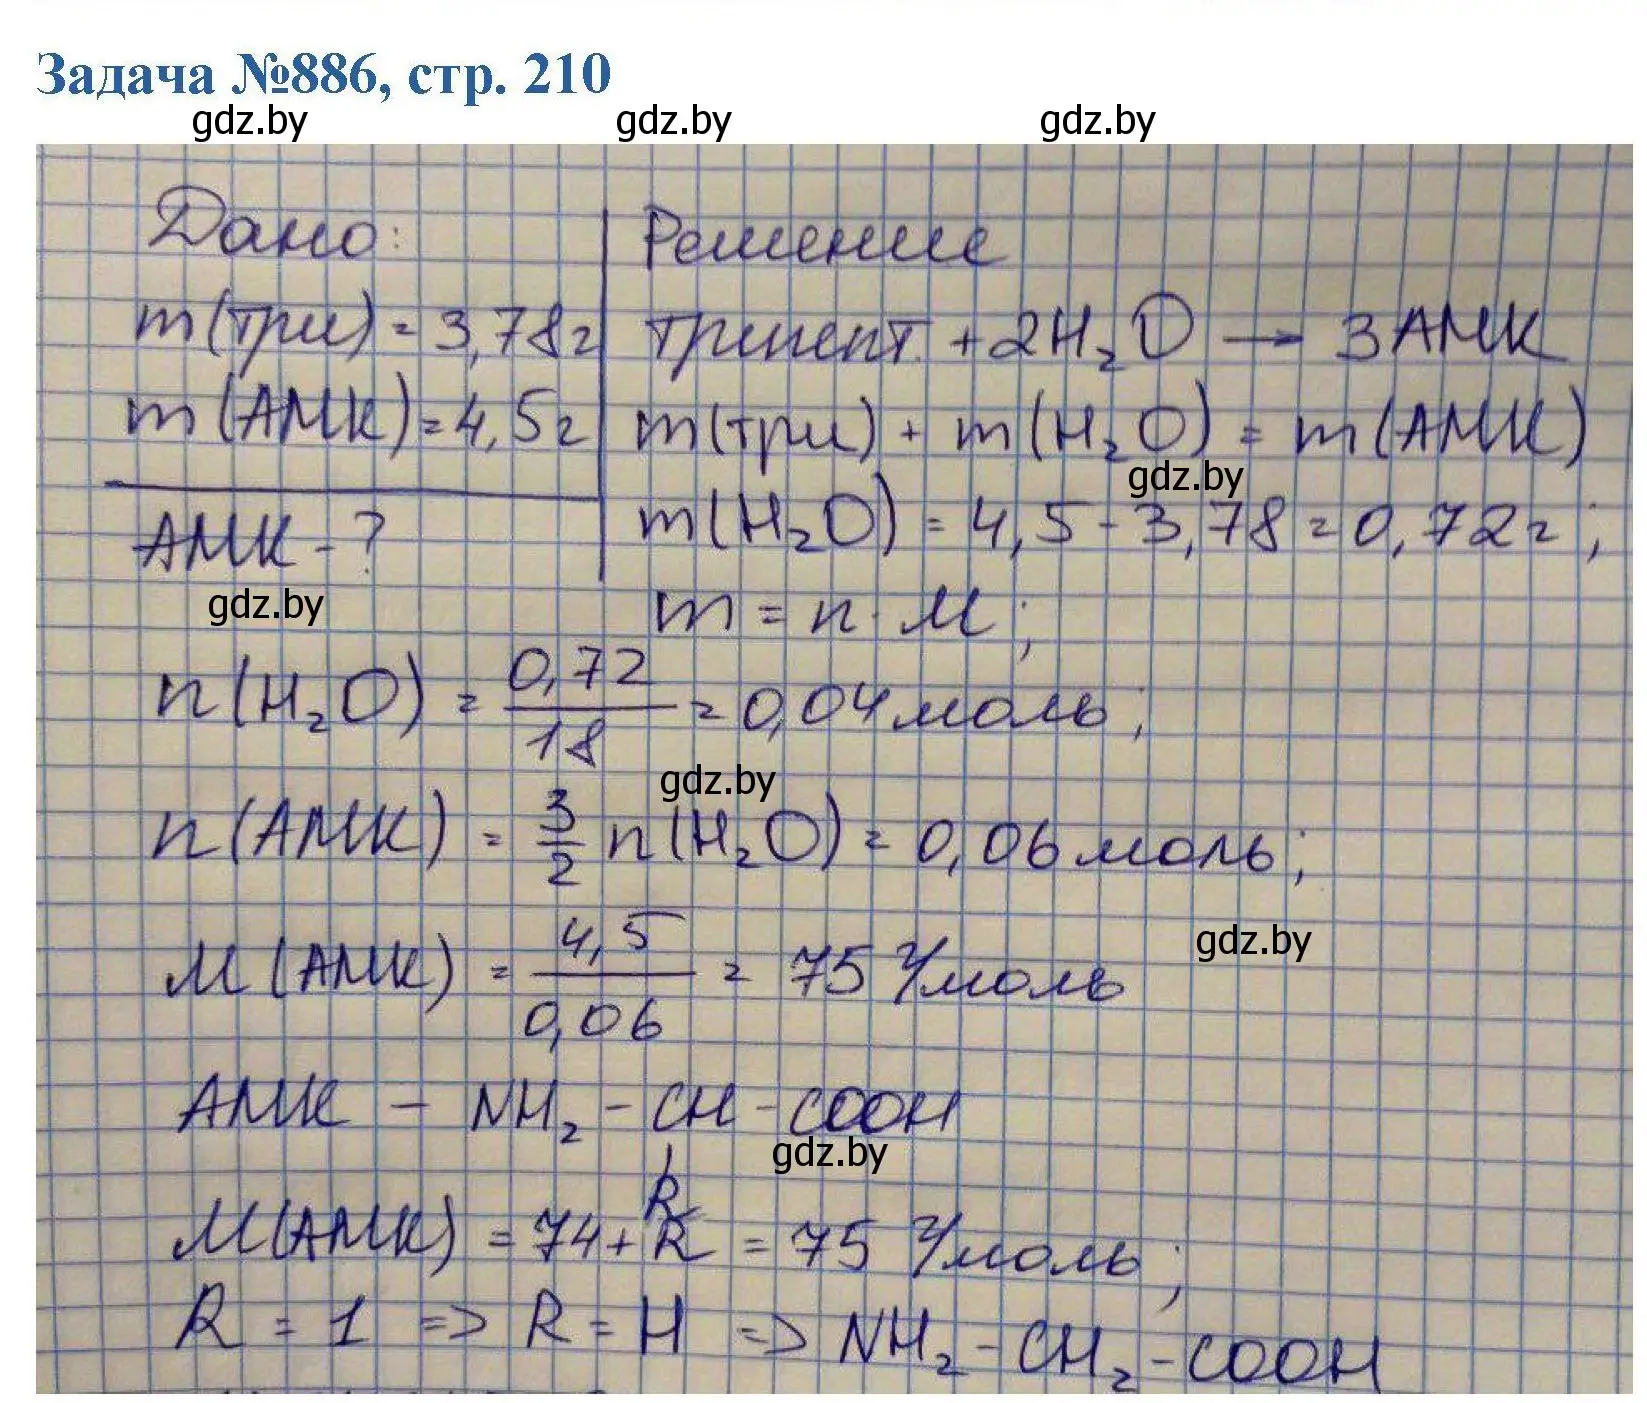 Задача №886, стр. 210
gdz.by gdz.by gdz.by
Дано:
m(три) = 3,78г
m(АМК) = 4,5г
АМК - ?
gdz.by
Решение
трипепт. + 2H₂O → 3АМК
m(три) + m(H₂O) = m(АМК)
gdz.by
m(H₂O) = 4,5 - 3,78 = 0,72г;
m = n · M;
n(H₂O) = 0,72/18 = 0,04 моль;
gdz.by
n(АМК) = 3/2 n(H₂O) = 0,06 моль;
M(АМК) = 4,5/0,06 = 75 г/моль
gdz.by
АМК - NH₂ - CH - COOH
R
gdz.by
M(АМК) = 74 + R = 75 г/моль;
R = 1 => R = H => NH₂ - CH₂ - COOH